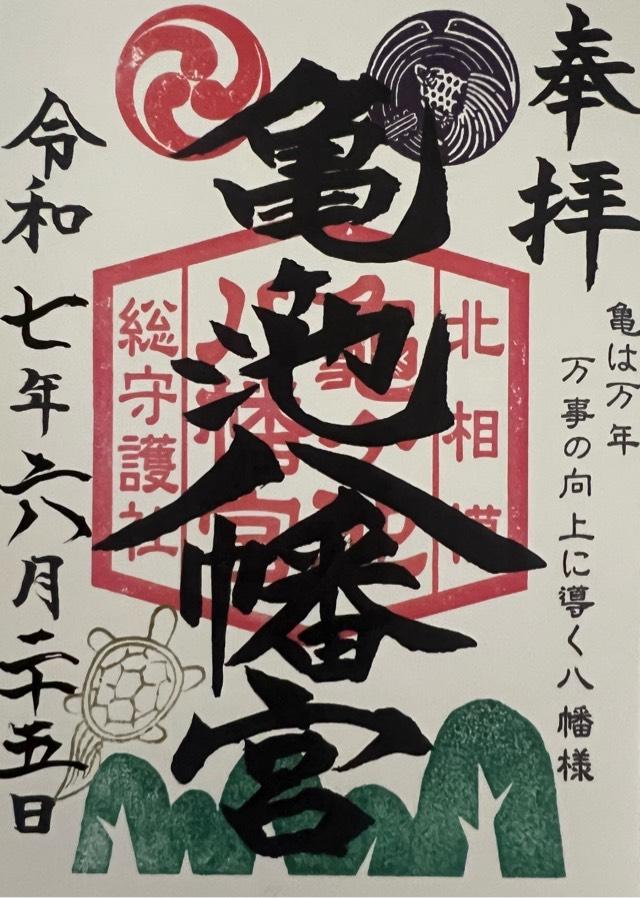 奉拝
亀は万年
万事の向上に導く八幡様
北相模
龜ヶ池
八幡宮
総守護社
亀池八幡宮
令和七年六月二十五日